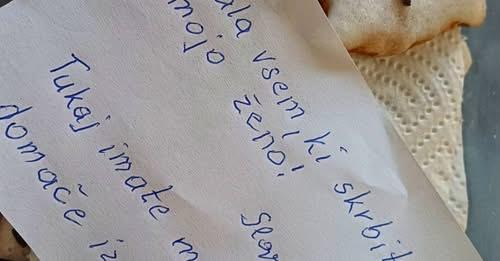 ala vsem, ki skrbit
mojo ženo!
Tukaj imate m
domače iz